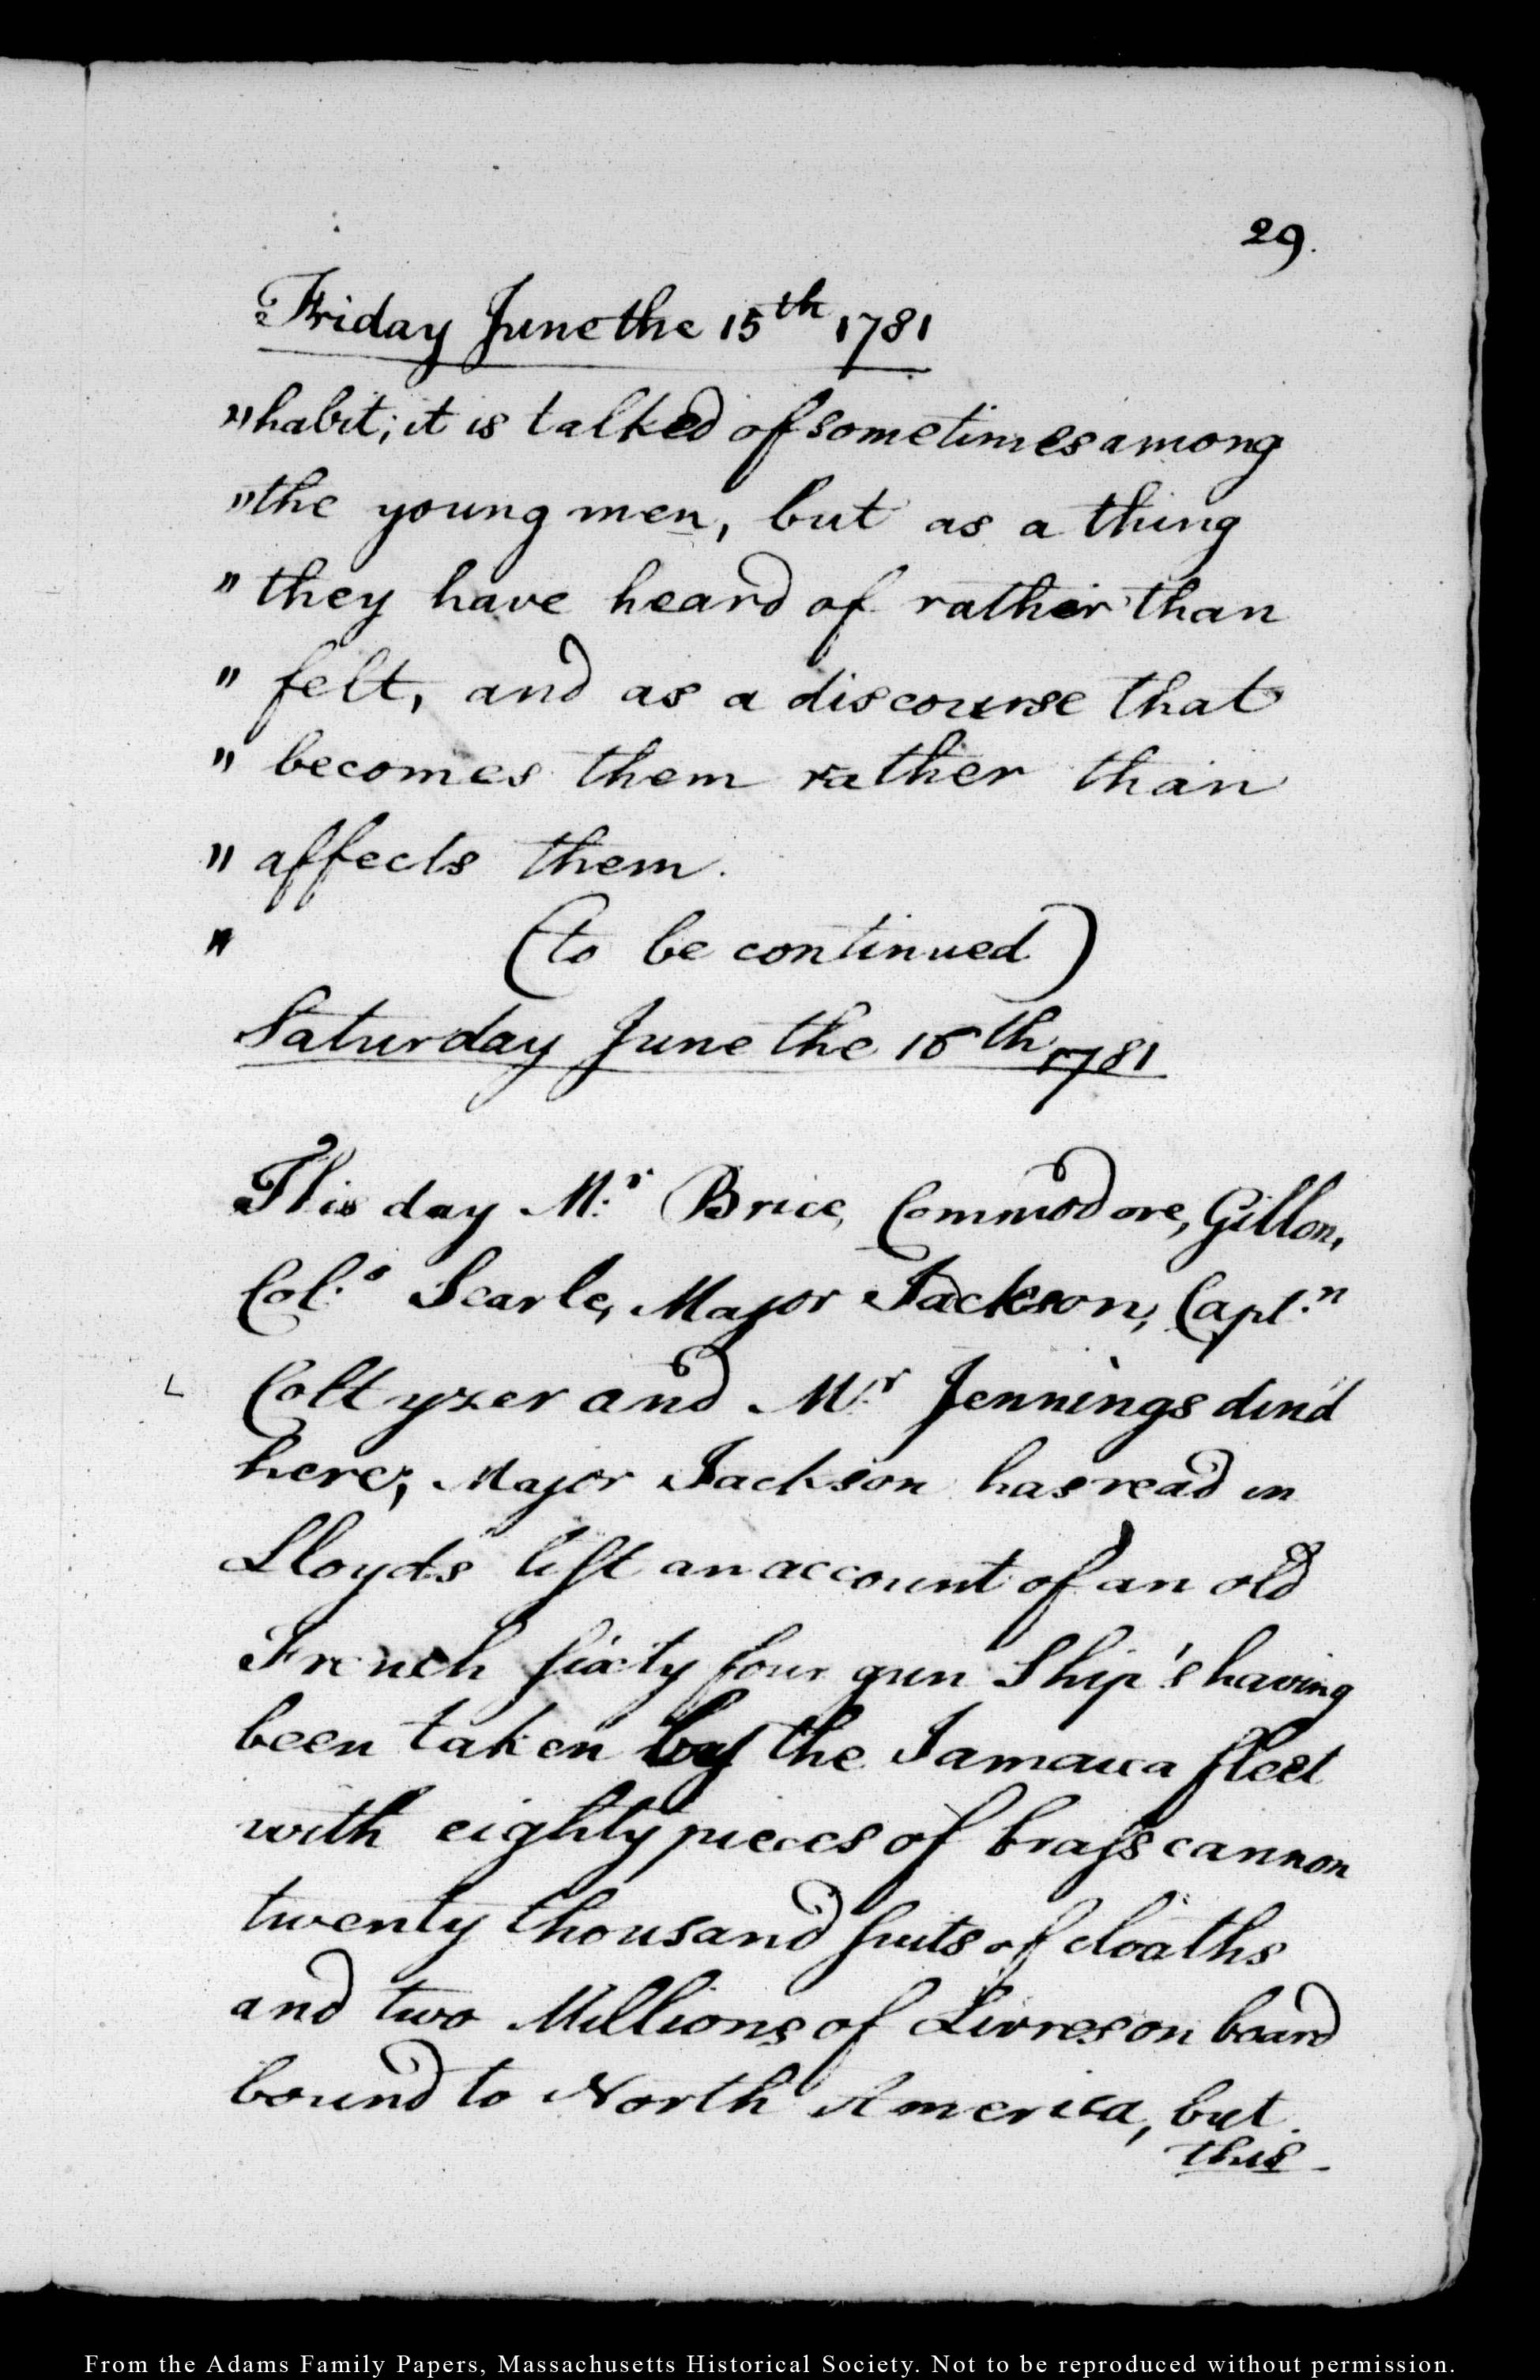 29.
Friday June the 15th 1781
"habit; it is talked of sometimes among
"the young men, but as a thing
" they have heard of rather than
" felt, and as a discourse that
" becomes them rather than
" affects them.
" (to be continued)
Saturday June the 16th 1781
This day Mr. Brice, Commodore, Gillon,
Col.o Searle, Major Jackson, Capt.n
Coltyzer and Mr. Jennings din'd
here; Major Jackson has read in
Lloyds list an account of an old
French sixty four gun Ship's having
been taken by the Jamaica fleet
with eighty pieces of brass cannon
twenty thousand suits of cloaths
and two Millions of Livres on board
bound to North America, but
this
From the Adams Family Papers, Massachusetts Historical Society. Not to be reproduced without permission.